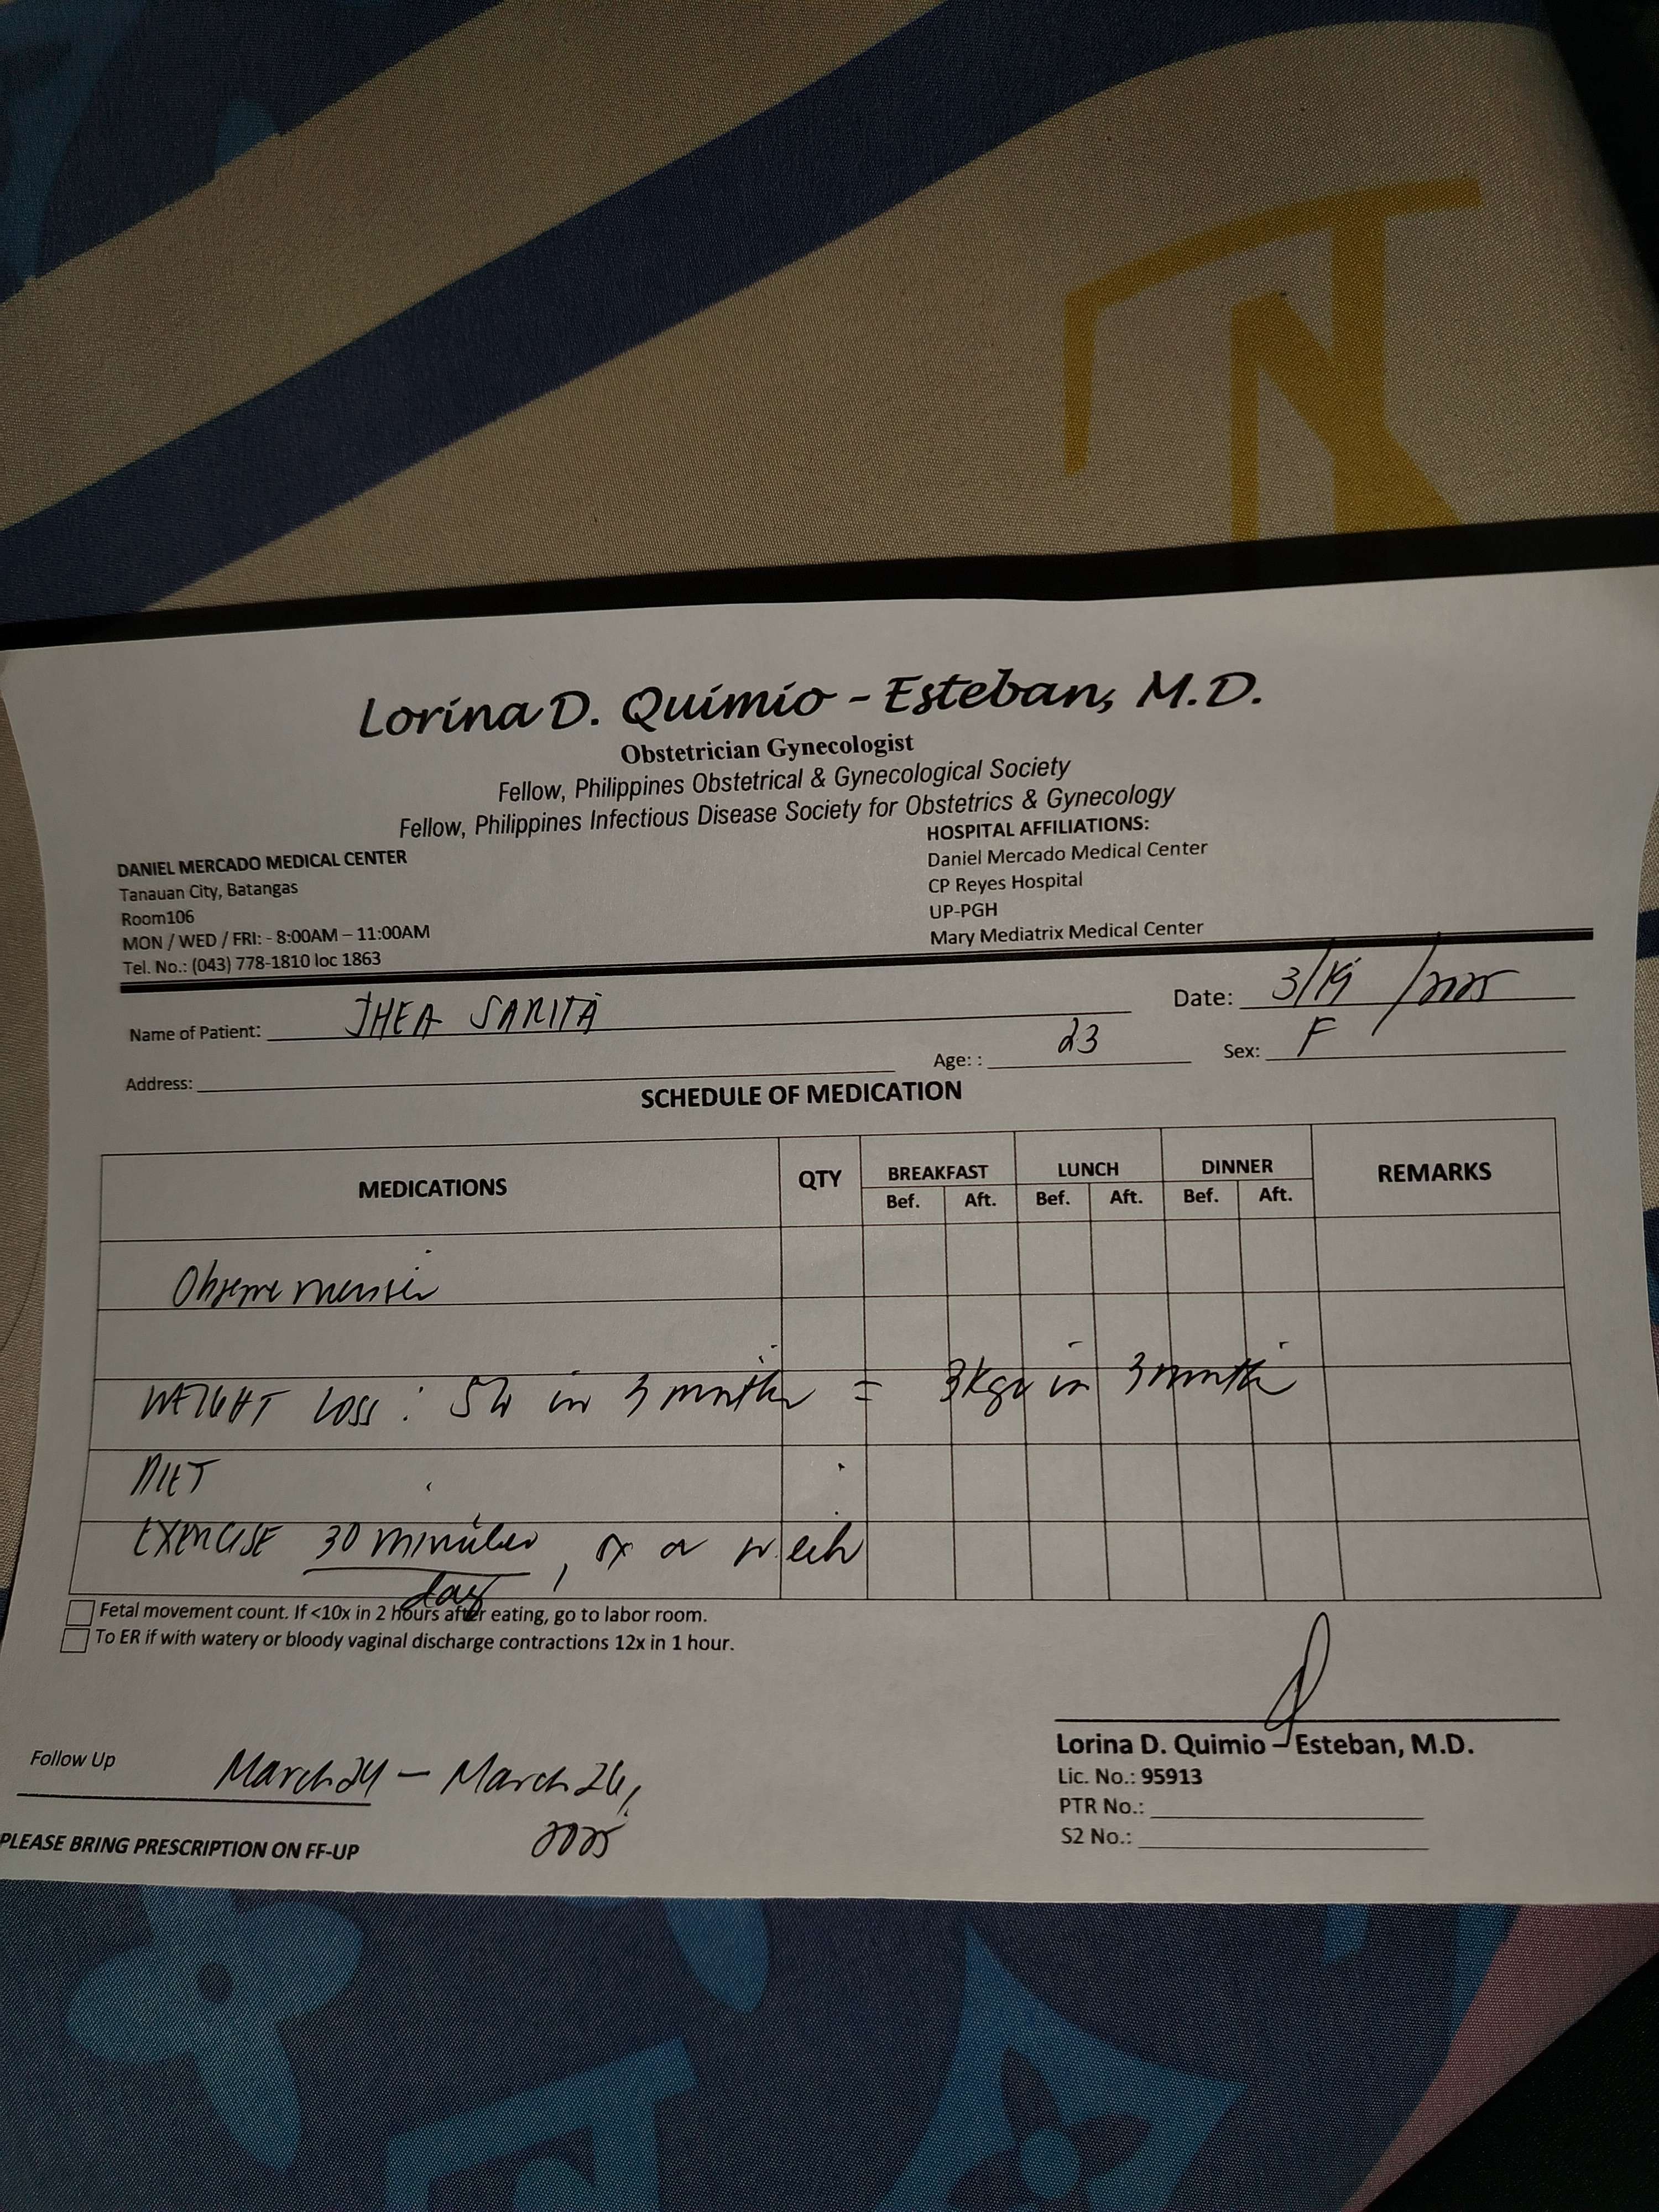 Lorina D. Quimio - Esteban, M.D.
Obstetrician Gynecologist
Fellow, Philippines Obstetrical & Gynecological Society
Fellow, Philippines Infectious Disease Society for Obstetrics & Gynecology
DANIEL MERCADO MEDICAL CENTER
Tanauan City, Batangas
Room106
MON / WED / FRI: - 8:00AM – 11:00AM
Tel. No.: (043) 778-1810 loc 1863
HOSPITAL AFFILIATIONS:
Daniel Mercado Medical Center
CP Reyes Hospital
UP-PGH
Mary Mediatrix Medical Center
Name of Patient: THEA SARITA Date: 3/19/2025
Address: Age: : 23 Sex: F
SCHEDULE OF MEDICATION
MEDICATIONS QTY BREAKFAST LUNCH DINNER REMARKS
Bef. Aft. Bef. Aft. Bef. Aft.
Observe menses
WEIGHT LOSS : in 3 months = 3kgs in 3 months
DIET
EXERCISE 30 minutes / day, a week
Fetal movement count. If <10x in 2 hours after eating, go to labor room.
To ER if with watery or bloody vaginal discharge contractions 12x in 1 hour.
Follow Up March 24 – March 26, 2025
PLEASE BRING PRESCRIPTION ON FF-UP
Lorina D. Quimio – Esteban, M.D.
Lic. No.: 95913
PTR No.:
S2 No.: